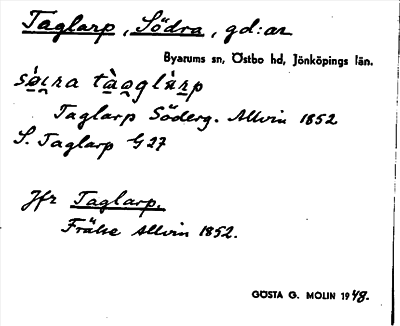 Taglarp, Södra, gd:ar
Byarums sn, Östbo hd, Jönköpings län.
Taglarp Söderg. Allvin 1852
S. Taglarp G 27
Jfr Taglarp.
Frälse Allvin 1852.
GÖSTA G. MOLIN 1948.